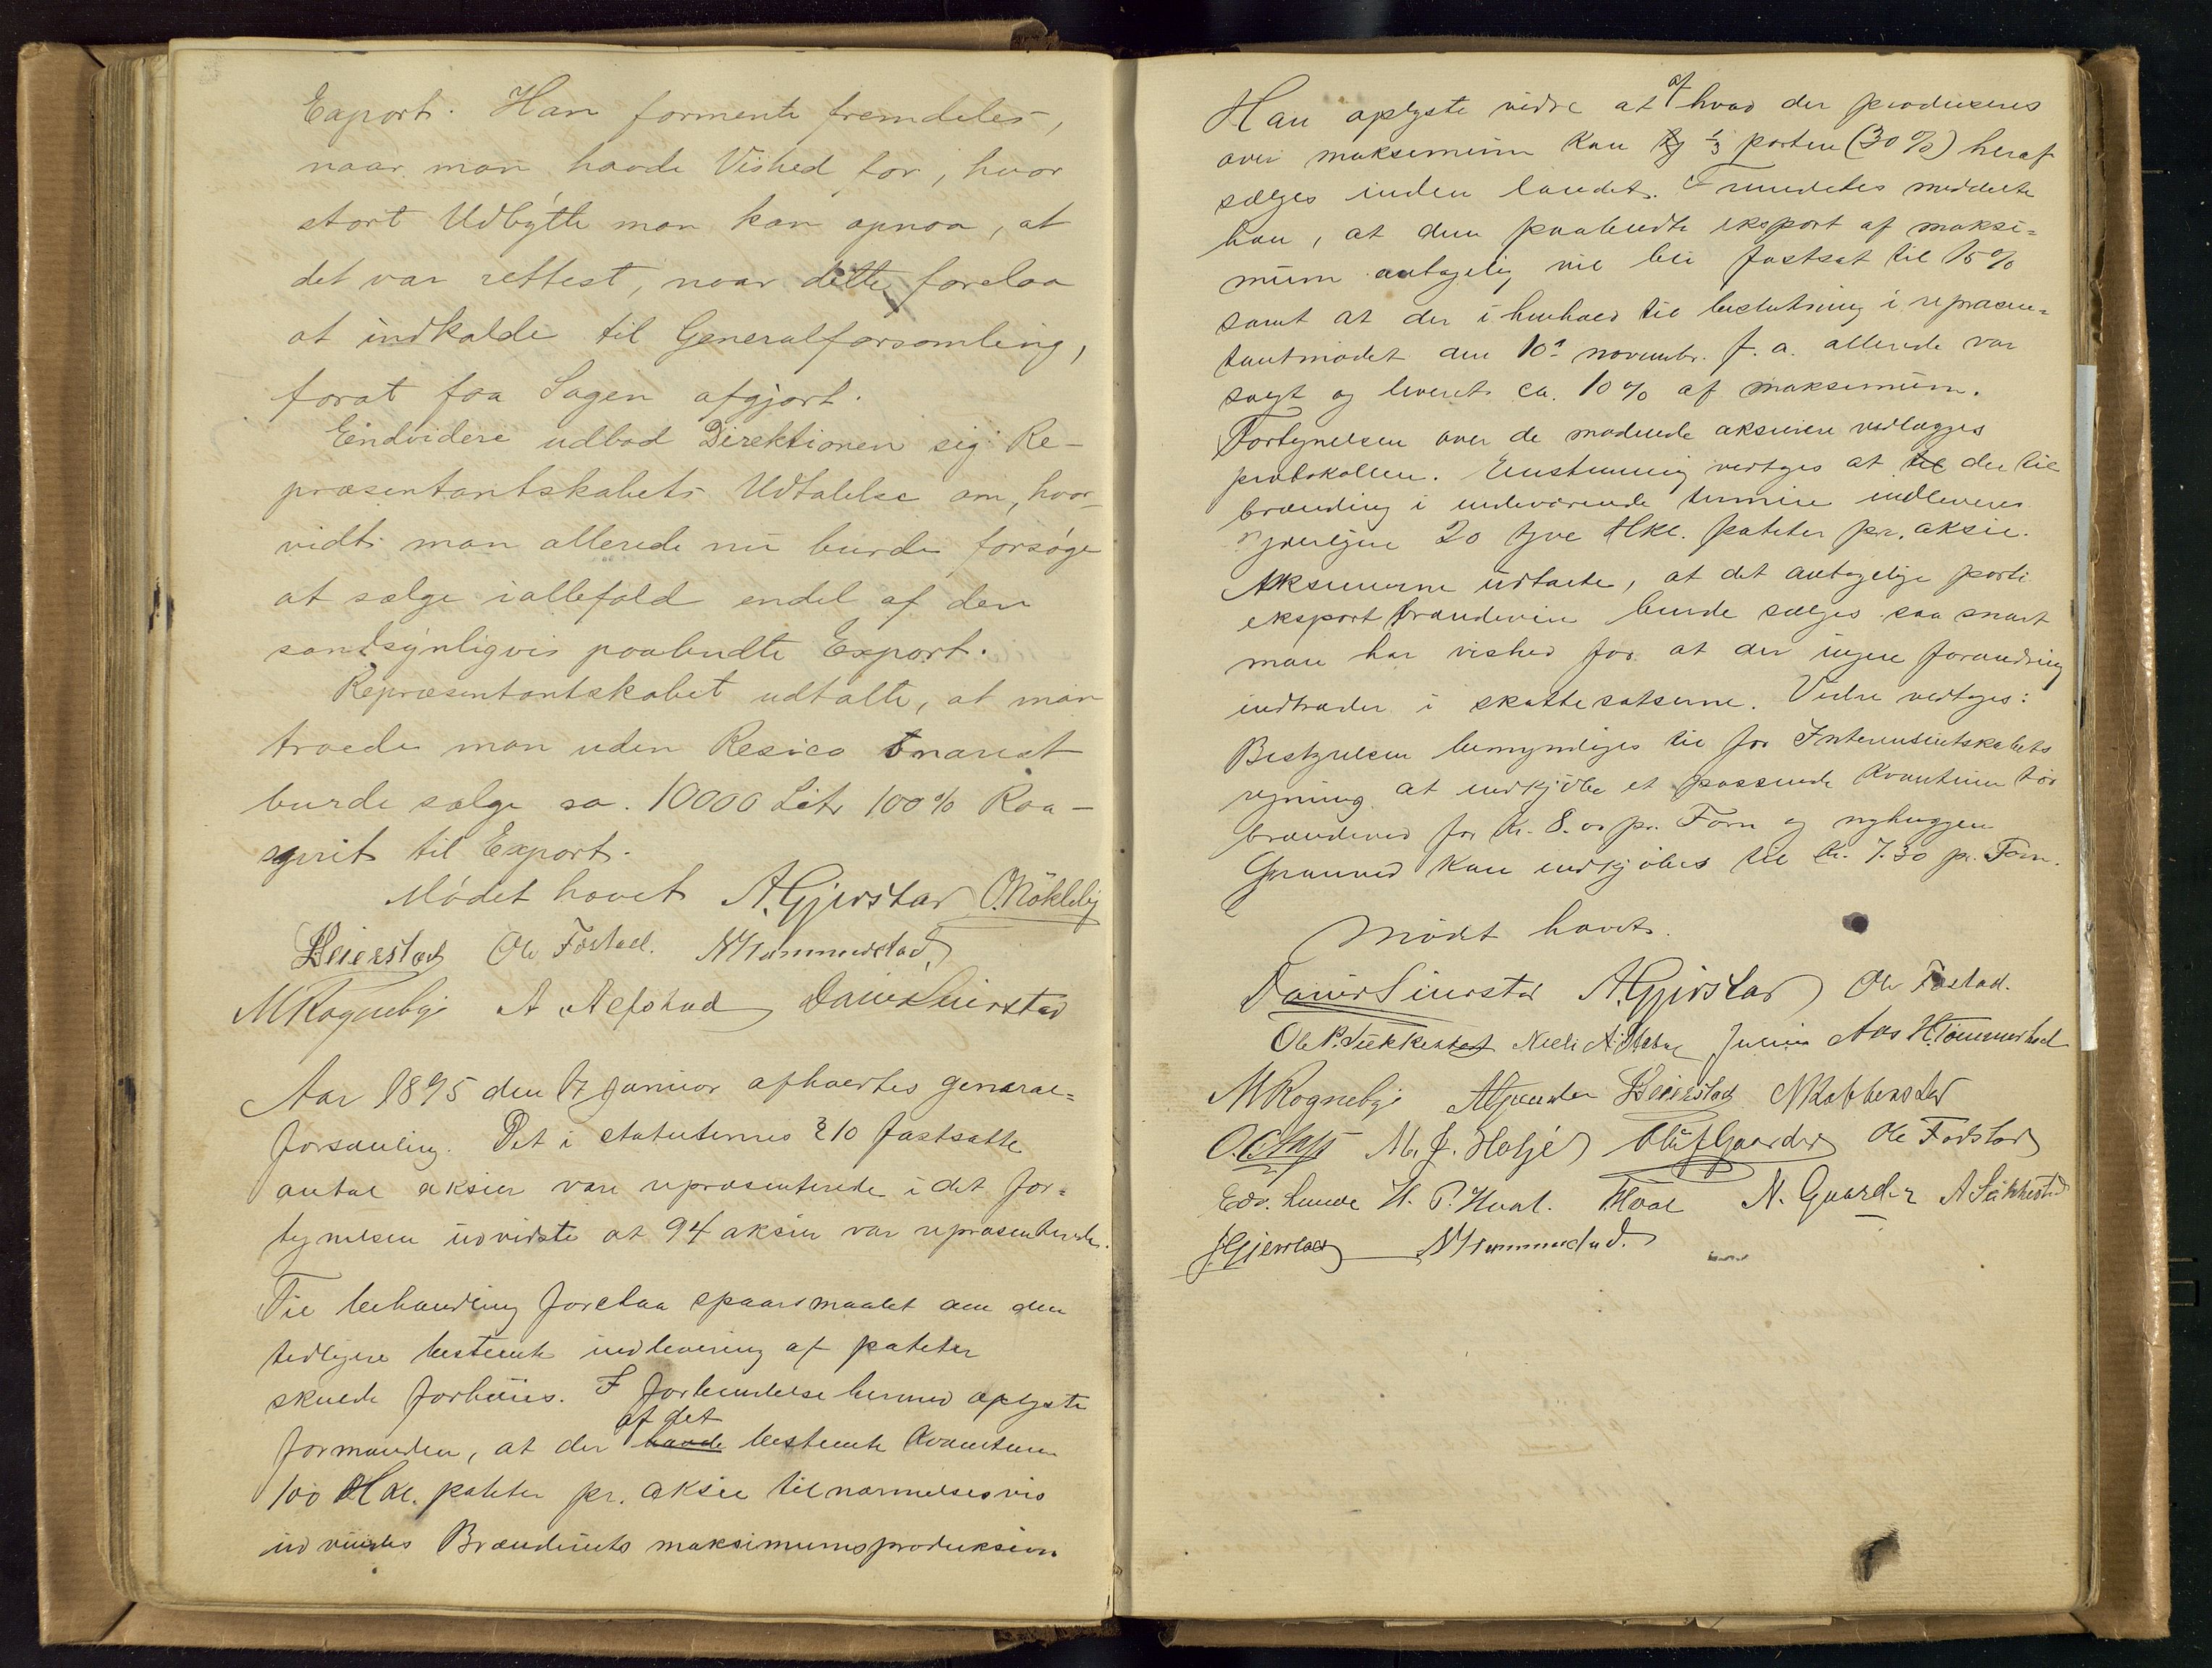 Export. Han formente fremdeles,
naar man havde Vished for, hvor
stort Udbÿtte man kan opnaa, at
det var rettest, naar dette forelaa
at indkalde til Generalforsamling,
forat faa Sagen afgjort.
Eindvidere udbad Direktionen sig Re-
præsentantskabets Udtalelse om, hvor-
vidt man allerede nu burde forsøge
at sælge iallefald endel af den
sandsÿnligvis paabudte Export.
Repræsentantskabet udtalte, at man
troede man uden Resico snarest
burde sælge ca. 10000 Liter 100% Raa-
sprit til Export.
Mødet hævet A. Gjerstad O. Nökleby
Heierstad Ole Fostad. N Tømmerstad
M Rognebye A Alfstad
Aar 1895 den 17 januar afholdtes general=
forsamling. Det i statuternes § 10 fastsatte
antal aksier vare repræsenterede i det for=
tegnelsen udviste at 94 aksier var repræsenterede.
Til behandling forelaa spøarsmaalet om den
tidligere bestemte indlevering af poteter
skulde forhøies. I forbindelse hermed oplyste
formanden, at der af det havde bestemte kvantum
100 Hkl. poteter pr. aksie tilnærmelsesvis
udvindes Brænderiets maksimumsproduksion
Han oplyste vidre at af hvad der produseres
over maksimum kan og 1/3 parten (30%) heraf
sælges inden landet. Fremdeles meddelte
han, at den paabudte eksport af maksi=
mum antagelig vil bli fastsat til 15%
samt at der i henhold til beslutning i repræsen=
tantmødet den 10de november f. a. allerede var
solgt og leveret ca. 10% af maksimum.
Fortegnelsen over de mødende aksierere vedlægges
protokollen. Enstemmig vedtoges at til der til
brænding i indeværende termin indleveres
yderligere 20 tyve Hkl. poteter pr. aksie.
Aksierne udtalte, at det antagelige parti
eksport brændevin burde sælges saa snart
man har vished for at der ingen forandring
indtræder i skattesatserne. Vidre vedtoges:
Bestyrelsen bemyndiges til for Interessentskabets
regning at indkjöbe et passende kvantum tör
brændeved for Kr. 8.00 pr. Favn og nyhuggen
Granved kan indkjøbes til Kr. 7.30 pr. Favn.
Mødet hævet.
A. Gjerstad Ole Fostad.
Ole P. Sukkestad Julius Aas H. Tømmerhol
M Rognebye Heierstad N Kobberstad
M. J. Holjé Oluf Gaarder Ole Fodstad
Edv. Lunde H. P. Hval. Hval N. Gaarder A Sukkestad
J. Gjerstad N Tømmerstad.